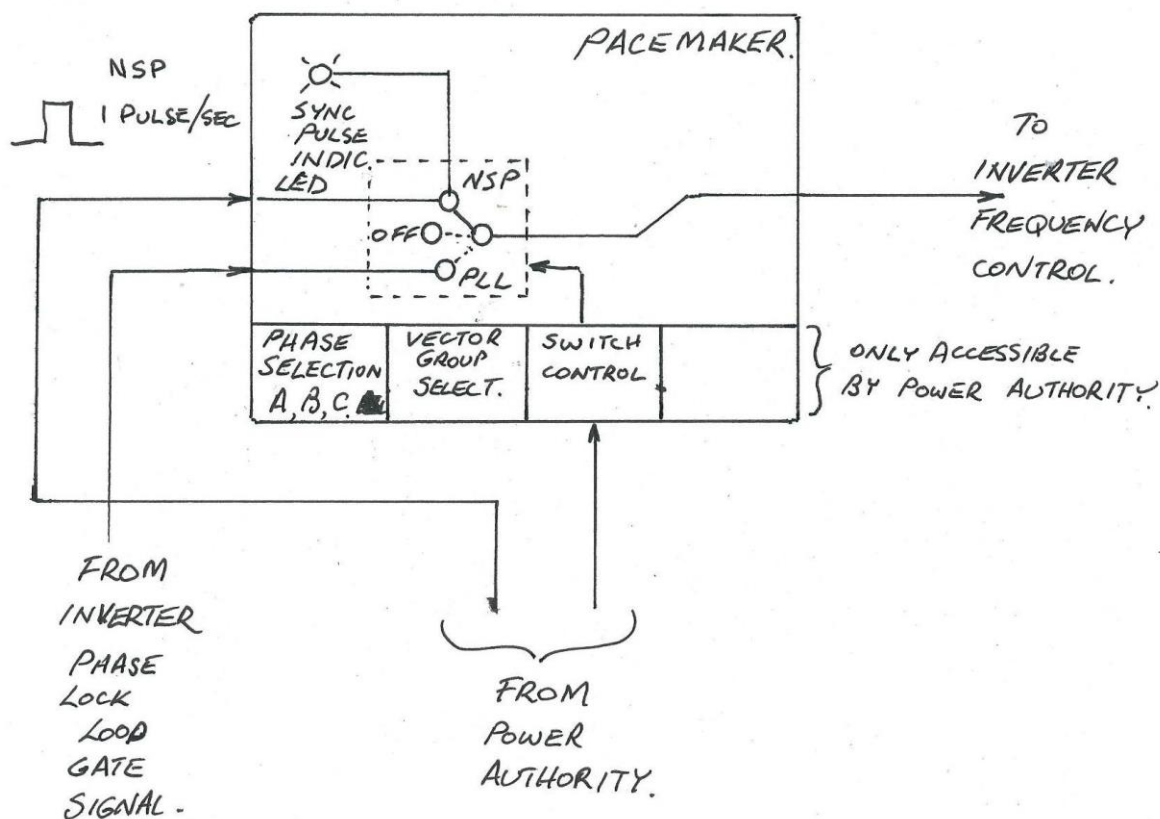 PACEMAKER.
NSP
1 PULSE/SEC
SYNC
PULSE
INDIC
LED
NSP
OFF
PLL
TO
INVERTER
FREQUENCY
CONTROL.
PHASE
SELECTION
A, B, C.
VECTOR
GROUP
SELECT.
SWITCH
CONTROL
ONLY ACCESSIBLE
BY POWER AUTHORITY.
FROM
INVERTER
PHASE
LOCK
LOOP
GATE
SIGNAL.
FROM
POWER
AUTHORITY.